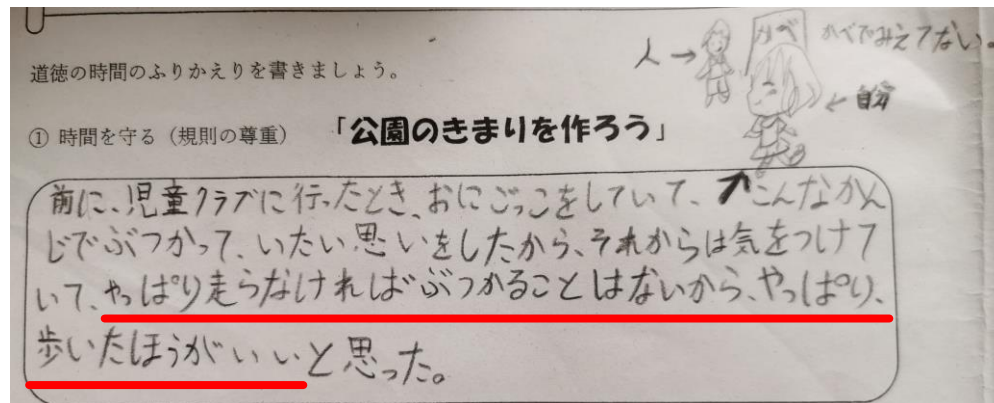 道徳の時間のふりかえりを書きましょう。
人→
かべ
かべでみえてない。
←自分
① 時間を守る（規則の尊重）　「公園のきまりを作ろう」
前に、児童クラブに行ったとき、おにごっこをしていて、↑こんなかん
じでぶつかって、いたい思いをしたから、それからは気をつけて
いて、やっぱり走らなければぶつかることはないから、やっぱり、
歩いたほうがいいと思った。